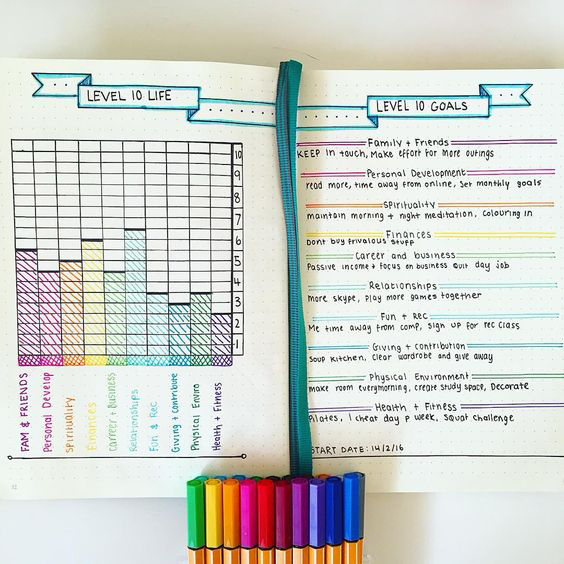 LEVEL 10 LIFE
10
9
8
7
6
5
4
3
2
1
FAM & FRIENDS
Personal Develop
Spirituality
Finances
Career + Business
Relationships
Fun & Rec
Giving + contribute
Physical Enviro
Health + Fitness
LEVEL 10 GOALS
Family + Friends
KEEP in touch, Make effort for more outings
Personal Development
read more, time away from online, Set monthly goals
Spirituality
maintain morning + night meditation, Colouring in
Finances
Dont buy frivalous stuff
Career and business
Passive income + focus on business quit day job
Relationships
More skype, Play more games together
Fun + Rec
Me time away from comp, Sign up for rec class
Giving + contribution
Soup kitchen, Clear wardrobe and give away
Physical Environment
make room everymorning, create study space, Decorate
Health + Fitness
Pilates, 1 cheat day p week, Squat challenge
START DATE: 14/2/16